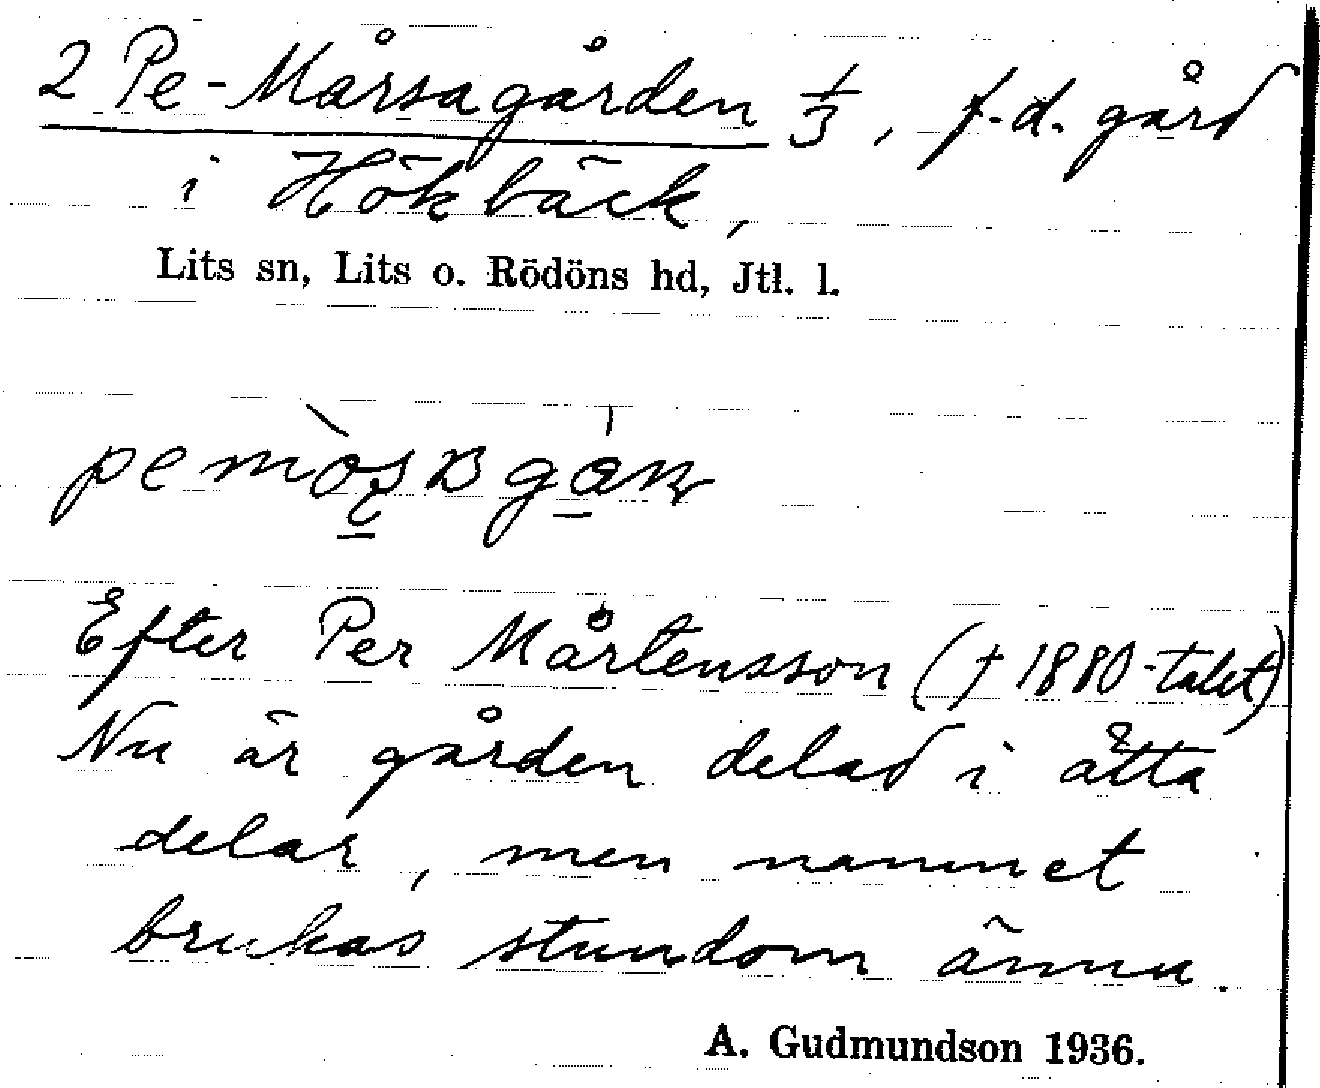 2 Pe-Mårsagården 1/3, f.d. gård
i Hökbäck,
Lits sn, Lits o. Rödöns hd, Jtl. l.
Efter Per Mårtensson († 1880-talet)
Nu är gården delad i åtta
delar, men namnet
brukas stundom ännu.
A. Gudmundson 1936.